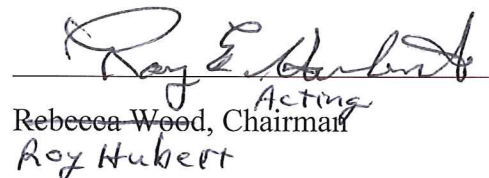 Roy E. Hubert
Acting
Rebecca Wood, Chairman
Roy Hubert